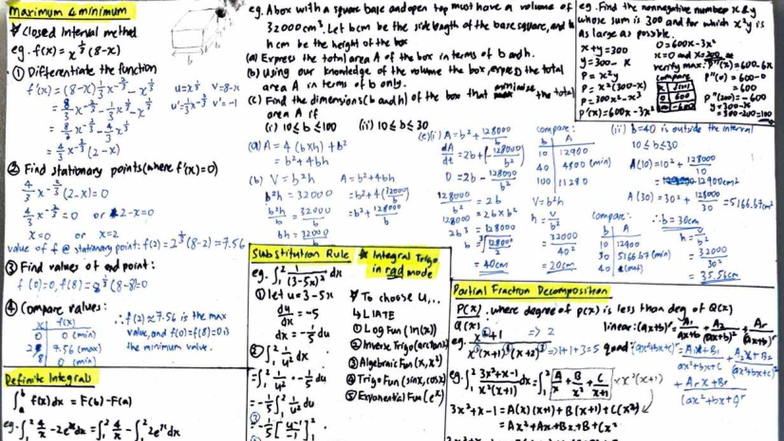 Maximum & minimum
* Closed Interval method
eg. f(x) = x^(2/3) (8-x)
① Differentiate the function
f'(x) = (8-x) 2/3 x^(-1/3) - x^(2/3)
u = x^(2/3) V = 8-x
u' = 2/3 x^(-1/3) v' = -1
= 4/3 x^(-1/3) (2-x)
② Find stationary points (where f'(x)=0)
4/3 x^(-1/3) (2-x) = 0
4/3 x^(-1/3) = 0 or 2-x=0
x=0 or x=2
value of f @ stationary point: f(2) = 2^(2/3) (8-2) = 7.56
③ Find values of end point:
④ Compare values:
x f(x)
0 0 (min)
2 7.56 (max)
8 0 (min)
∴ f(2) ≈ 7.56 is the max
value, and f(0)=f(8)=0 is
the minimum value.
Definite Integral
∫_a^b f(x) dx = F(b) - F(a)
eg. ∫_1^2 4/x - 2e^x dx = ∫_1^2 4/x - ∫_1^2 2e^x dx
eg. A box with a square base and open top must have a volume of
32000 cm³. Let b cm be the side length of the base square, and
h cm be the height of the box
(a) Express the total area A of the box in terms of b and h.
(b) Using our knowledge of the volume the box, express the total
area A in terms of b only.
(c) Find the dimensions (b and h) of the box that minimize the total
area A if
(i) 10 ≤ b ≤ 100 (ii) 10 ≤ b ≤ 30
(a) A = 4 (b×h) + b²
= b² + 4bh
(b) V = b²h A = b² + 4bh
b²h = 32000 = b² + 4(32000/b)
b²h/b = 32000/b = b² + 128000/b
bh = 32000/b
(c)(i) A = b² + 128000/b
dA/dt = 2b + (-128000/b²)
0 = 2b - 128000/b²
128000/b² = 2b
128000 = 2b×b²
2b³ = 128000
= 40cm
compare:
b A
10 12900
40 4800 (min)
100 11280
V = b²h
h = V/b²
= 32000/40²
= 20cm
(ii) b=40 is outside the interval
10 ≤ b ≤ 30
A(10) = 10² + 128000/10
= 12900cm²
A(30) = 30² + 128000/30 = 5166.67cm²
compare:
b A
10 12900
30 5166.67 (min)
∴ b = 30cm
h = V/b²
= 32000/30²
= 35.56cm
eg. Find the nonnegative number x & y
whose sum is 300 and for which x²y is
as large as possible.
x+y=300
y=300-x
P = x²y
P = x²(300-x)
P = 300x²-x³
P'(x) = 600x-3x²
0 = 600x-3x²
x=0 and x=200
verify max: P''(x) = 600-6x
compare P''(0) = 600-0
= 600
P''(200) = -600
y = 300-x
= 300-200 = 100
Substitution Rule
eg. ∫_1^2 1/(3-5x)² dx
① let u = 3-5x
du/dx = -5
dx = -1/5 du
② ∫_1^2 1/u² dx
= ∫_1^2 1/u² · -1/5 du
= -1/5 ∫_1^2 1/u² du
= -1/5 [u^(-1)/-1]_1^2
* Integral Trigo
in rad mode
* To choose u,..
↳ LIATE
① Log Fun (ln(x))
② Inverse Trigo (arctan x)
③ Algebraic Fun (x, x²)
④ Trigo Fun (sin x, cos x)
⑤ Exponential Fun (e^x)
Partial Fraction Decomposition
P(x)/Q(x), where degree of p(x) is less than deg of Q(x)
linear: (ax+b)^r = A₁/ax+b + A₂/(ax+b)² + Ar/(ax+b)^r
=> 1+1+3=5
eg. ∫_1^2 3x²+x-1/x²(x+1) dx = ∫_1^2 A/x + B/x² + C/x+1 × x²(x+1)
3x²+x-1 = A(x)(x+1) + B(x+1) + C(x²)
= Ax²+Ax+Bx+B+Cx²